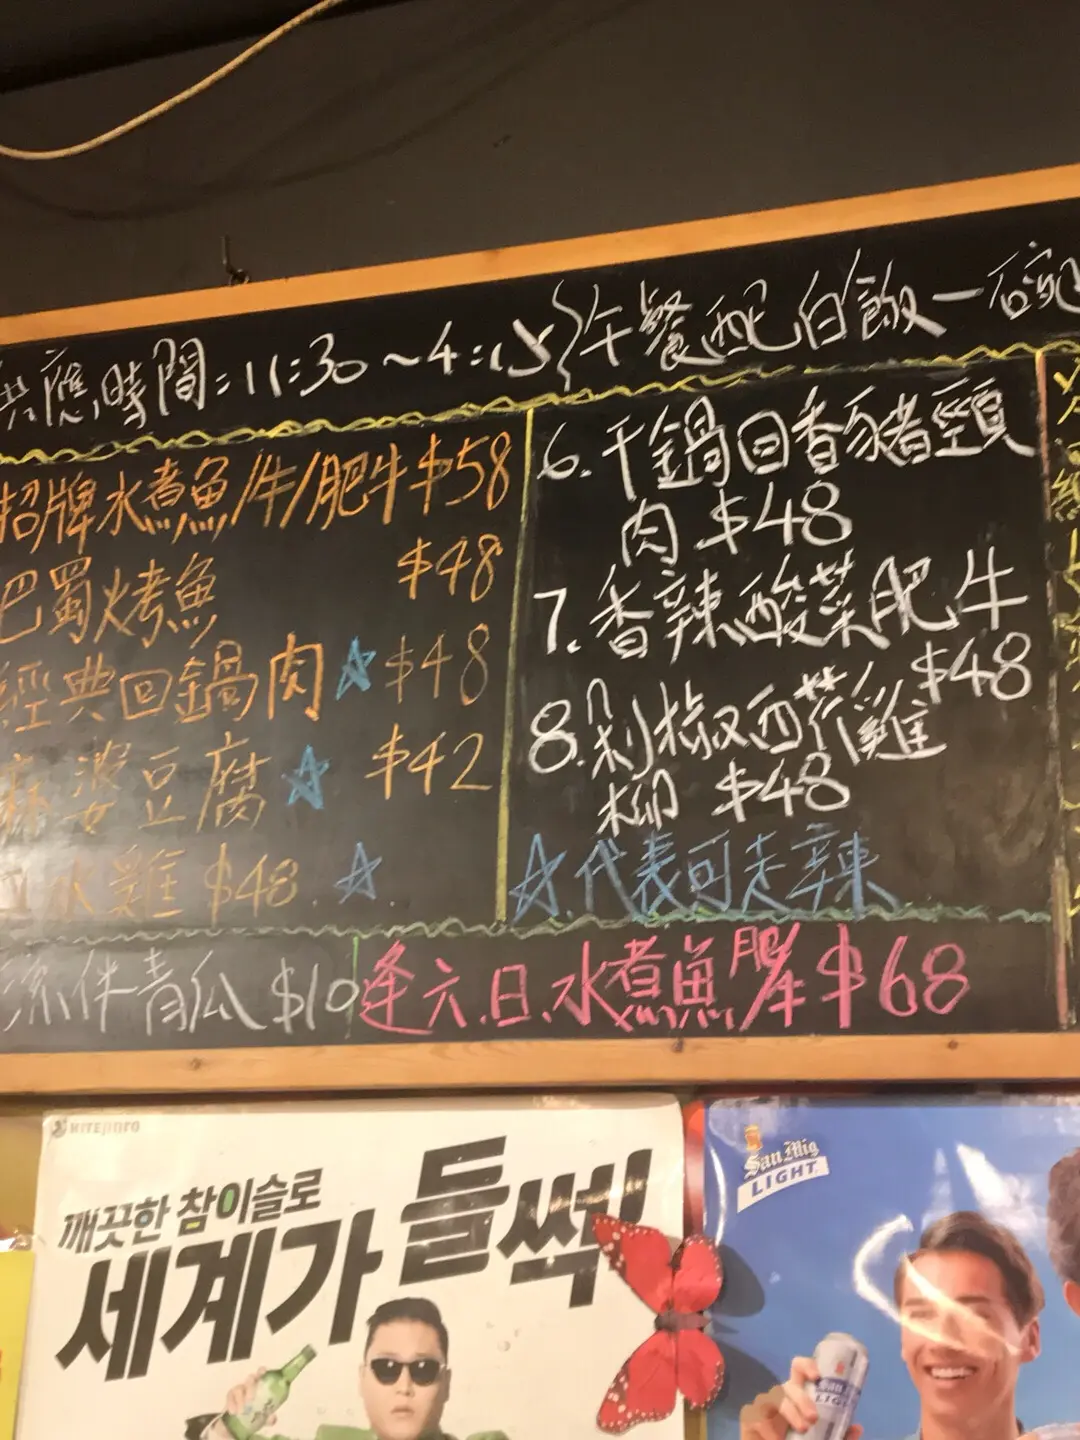 供應時間:11:30~4:15 午餐配白飯一碗
招牌水煮魚/牛/肥牛 $58
巴蜀烤魚 $48
經典回鍋肉 ☆ $48
麻婆豆腐 ☆ $42
口水雞 $48 ☆
6. 干鍋回香豬頸
肉 $48
7. 香辣酸菜肥牛
$48
8. 剁椒西芹雞
柳 $48
☆代表可走辣
涼伴青瓜 $10
逢六.日.水煮魚肥牛 $68
HITEJINRO
깨끗한 참이슬로
세계가 들썩!
San Mig
LIGHT
San
LIG